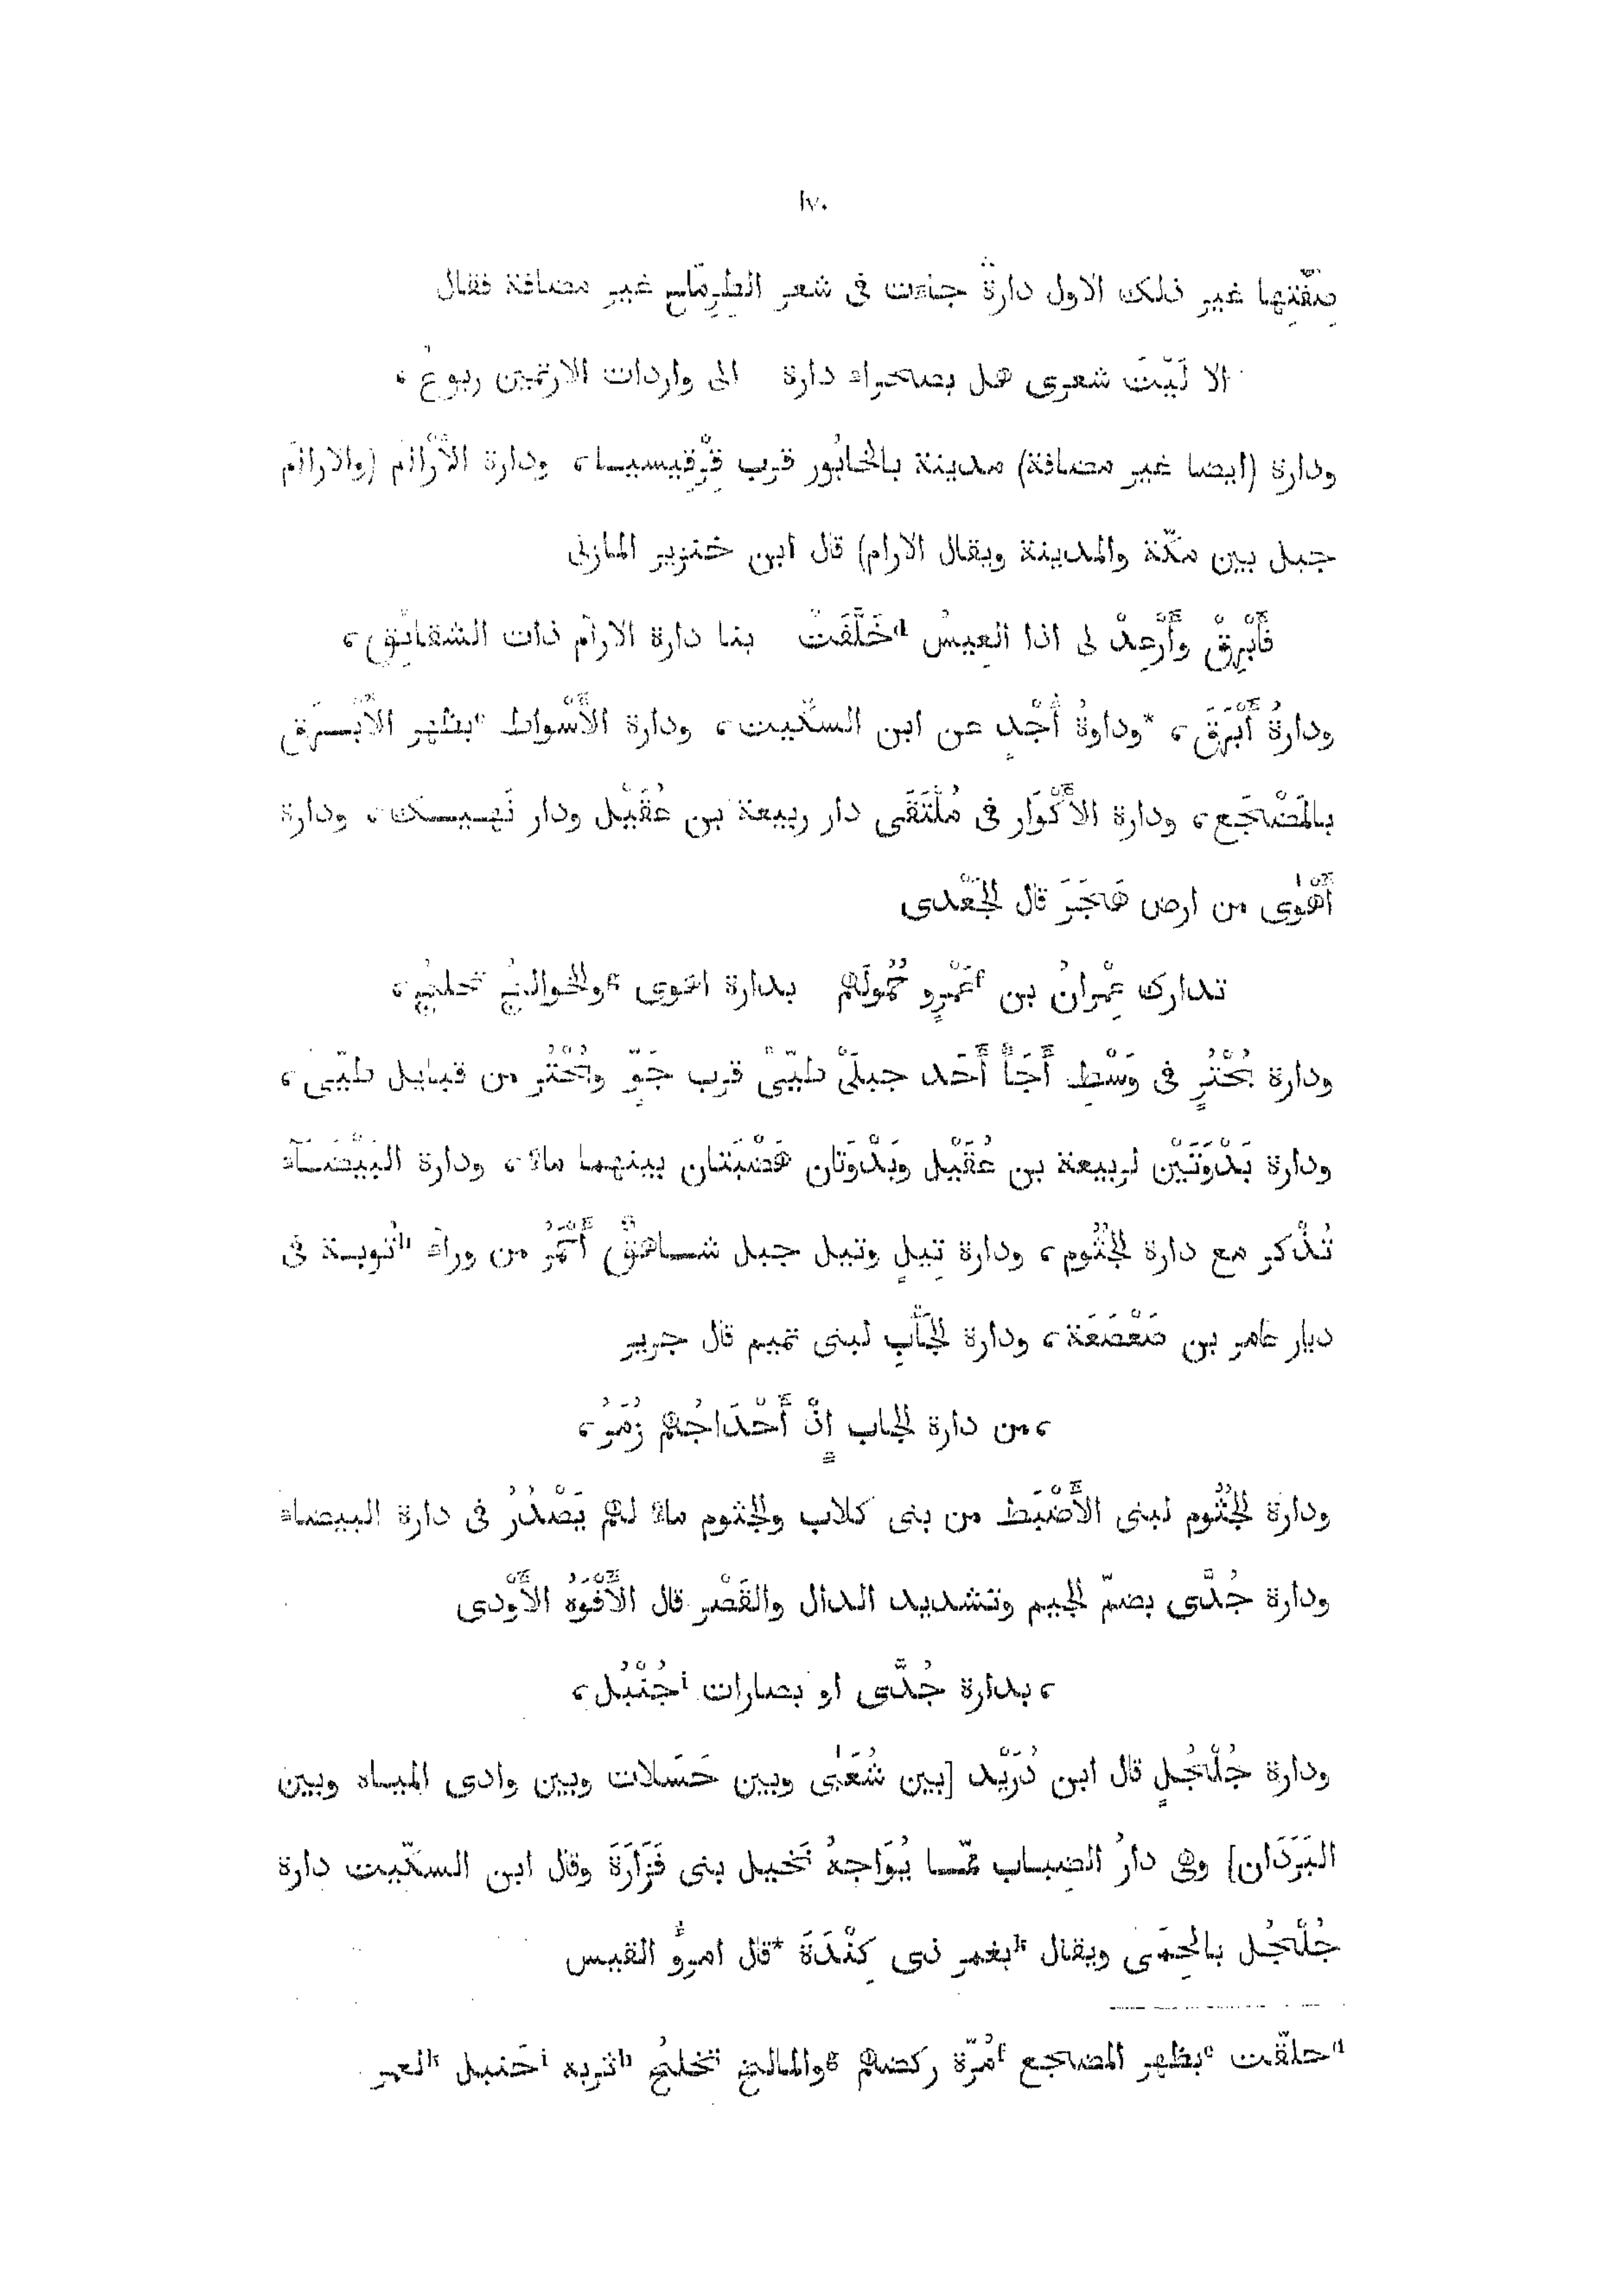 ١٧٠
صِفَتِها غير ذلك الاول دارةُ جاءت فى شعر الطِرِمّاح غير مضافة فقال
الا لَيْتَ شعرى هل بصحراء دارة الى واردات الارتمين ربوعُ ،
ودارة (ايضا غير مضافة) مدينة بالخابُور قرب قِرْقِيسيا ، ودارة الأَرْآام (والاراام
جبل بين مكّة والمدينة ويقال الارام) قال ابن خنزير المازنى
فَأَبْرِقْ وأَرْعِدْ لى اذا العِيسُ dخَلَّفَتْ بنا دارة الارآم ذات الشقائق ،
ودارةُ أَبْرَقَ ، *وداوةُ أُجْدٍ عن ابن السكّيت ، ودارة الأَسْواط eبظهر الأَبْــرَق
بالمَضْجَع ، ودارة الأَكْوَار فى مُلْتَقَى دار ربيعة بن عُقَيْل ودار نَهِـيـك ، ودارة
أَهْوٰى من ارض هَجَرَ قال الجَعْدى
تدارك عِمْرانُ بن fعَمْرٍو حُمُولَهم بدارة اهوى gوالخوالجُ تخلجُ ،
ودارة بُحْتُرٍ فى وَسْطِ أَجَأَ أَحَد جبلَىْ طيّىْ قرب جَوّ وبُحْتُر من قبايل طيّى ،
ودارة بَدْوَتَيْن لربيعة بن عُقَيْل وبَدْوَتان هَضْبَتان بينهما ماءٌ ، ودارة البَيْضَــآء
تُذْكر مع دارة الجُثُوم ، ودارة تِيلٍ وتيل جبل شــاهقٌ أَحْمَرُ من وراء hتُوبـة فى
ديار عامر بن صَعْصَعَة ، ودارة الجَأْبِ لبنى تميم قال جرير
،من دارة الجاب إِنّ أَحْدَاجُهم زُمَرُ ،
ودارة الجُثُوم لبنى الأَضْبَط من بنى كلاب والجثوم ماءٌ لهم يَصْدُرُ فى دارة البيضاء
ودارة جُدَّى بضمّ الجيم وتشديد الدال والقَصْر قال الأَفْوَهُ الأَوْدى
،بدارة جُدَّى او بصارات iجُنْبُل ،
ودارة جُلْجُلٍ قال ابن دُرَيْد [بين شُعَبٰى وبين حَسَلات وبين وادى المياه وبين
البَرَدَان] وهى دارُ الضِباب ممّــا يُوَاجِهُ نَخيل بنى فَزَارَةَ وقال ابن السكّيت دارة
جُلْجُل بالحِمَى ويقال kبغمر ذى كِنْدَةَ *قال امرؤُ القيس
dحلقّت eبظهر المضجع fمُرّة ركضهم gوالمالخ تخلجُ hثربه iحَنبل kلعمر